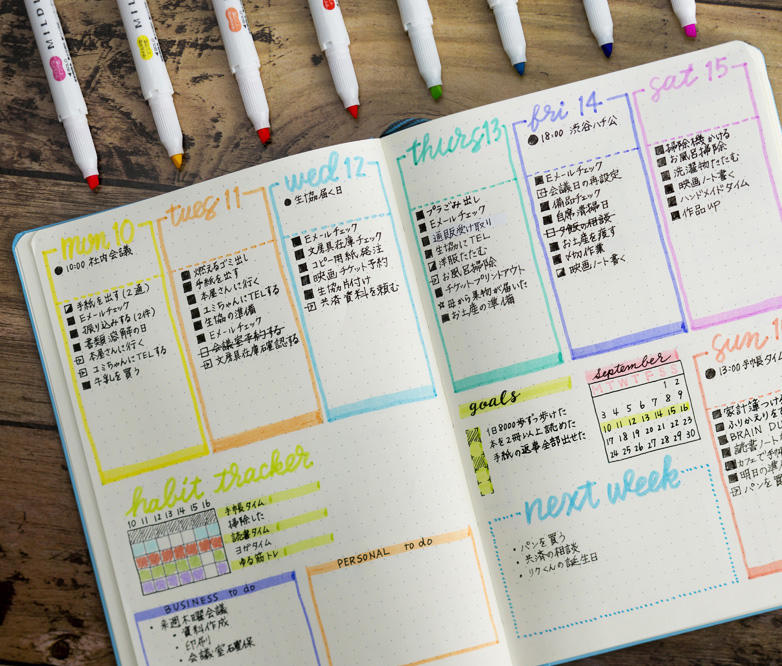 MILDL
mon 10
● 10:00 社内会議
手紙を出す(2通)
Eメールチェック
振り込みする(2件)
書類溶解の日
本屋さんに行く
エミちゃんにTELする
牛乳を買う
tues 11
燃えるゴミ出し
手紙を出す
本屋さんに行く
エミちゃんにTELする
生協の準備
Eメールチェック
会議室予約する
文房具在庫確認する
wed 12
● 生協届く日
Eメールチェック
文房具在庫チェック
コピー用紙発注
映画チケット予約
生協片付け
共済資料を頼む
thurs 13
プラごみ出し
Eメールチェック
通販受け取り
生協にTEL
洋服たたむ
お風呂掃除
チケットプリントアウト
☆ 母から果物が届いた
お土産の準備
fri 14
● 18:00 渋谷ハチ公
Eメールチェック
会議日の再設定
備品チェック
自席清掃日
お土産を渡す
〆切作業
映画ノート書く
sat 15
掃除機かける
お風呂掃除
洗濯物たたむ
映画ノート書く
ハンドメイドタイム
作品UP
goals
1日8000歩ずつ歩けた
本を2冊以上読めた
手紙の返事全部出せた
september
M T W T F S S
1 2
3 4 5 6 7 8 9
10 11 12 13 14 15 16
17 18 19 20 21 22 23
24 25 26 27 28 29 30
sun 1
● 13:00 手帳タイム
家計簿つける
ふりかえり
BRAIN DU
読書ノート
カフェで手
明日の準
パンを買
habit tracker
10 11 12 13 14 15 16
手帳タイム
掃除した
読書タイム
ヨガタイム
ゆる筋トレ
next week
・パンを買う
・共済の相談
・リクくんの誕生日
BUSINESS to do
・来週木曜会議
・資料作成
・印刷
・会議室確保
PERSONAL to do